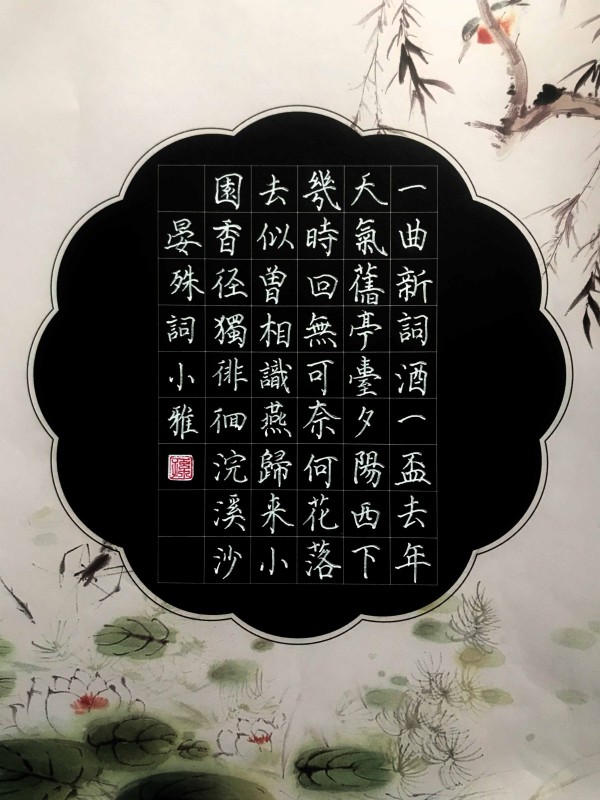 一曲新詞酒一盃去年
天氣舊亭臺夕陽西下
幾時回無可奈何花落
去似曾相識燕歸来小
園香徑獨徘徊浣溪沙
晏殊詞小雅